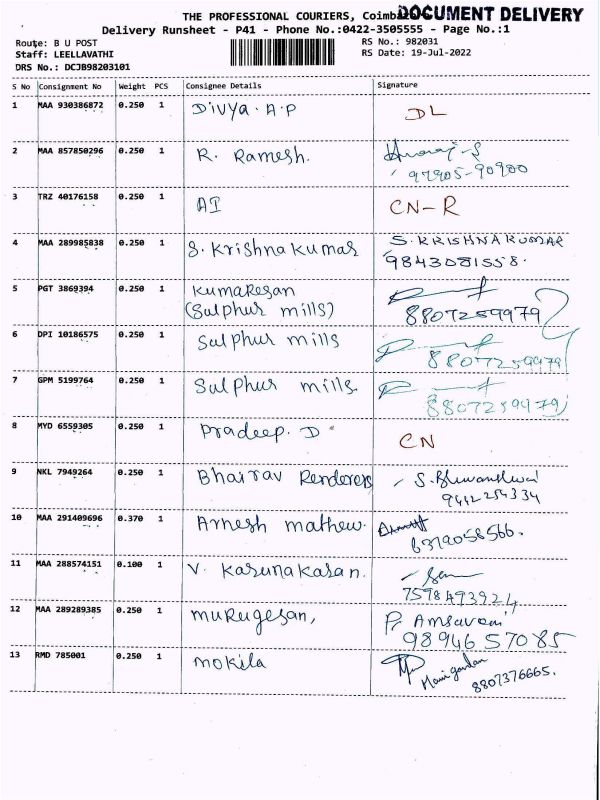 THE PROFESSIONAL COURIERS, Coimb DOCUMENT DELIVERY
Delivery Runsheet - P41 - Phone No.:0422-3505555 - Page No.:1
Route: B U POST RS No.: 982031
Staff: LEELLAVATHI RS Date: 19-Jul-2022
DRS No.: DCJB98203101
S No Consignment No Weight PCS Consignee Details Signature
1 MAA 930386872 0.250 1 Divya. A.P DL
2 MAA 857850296 0.250 1 R. Ramesh.
97905-90900
3 TRZ 40176158 0.250 1 AI CN-R
4 MAA 289985838 0.250 1 S. Krishnakumar S. KRISHNAKUMAR
9843081558.
5 PGT 3869394 0.250 1 Kumaresan
(Sulphur mills) 8807259979
6 DPI 10186575 0.250 1 Sulphur mills
8807259979
7 GPM 5199764 0.250 1 Sulphur mills.
8807259979
8 MYD 6559305 0.250 1 Pradeep. D CN
9 NKL 7949264 0.250 1 Bhairav Renderers S.
9442254334
10 MAA 291409696 0.370 1 Arnesh mathew.
6379058566.
11 MAA 288574151 0.100 1 V. Karunakaran.
7598493924
12 MAA 289289385 0.250 1 murugesan, P. Amsaveni
9894657085
13 RMD 785001 0.250 1 mokila Manigandan
8807376665.